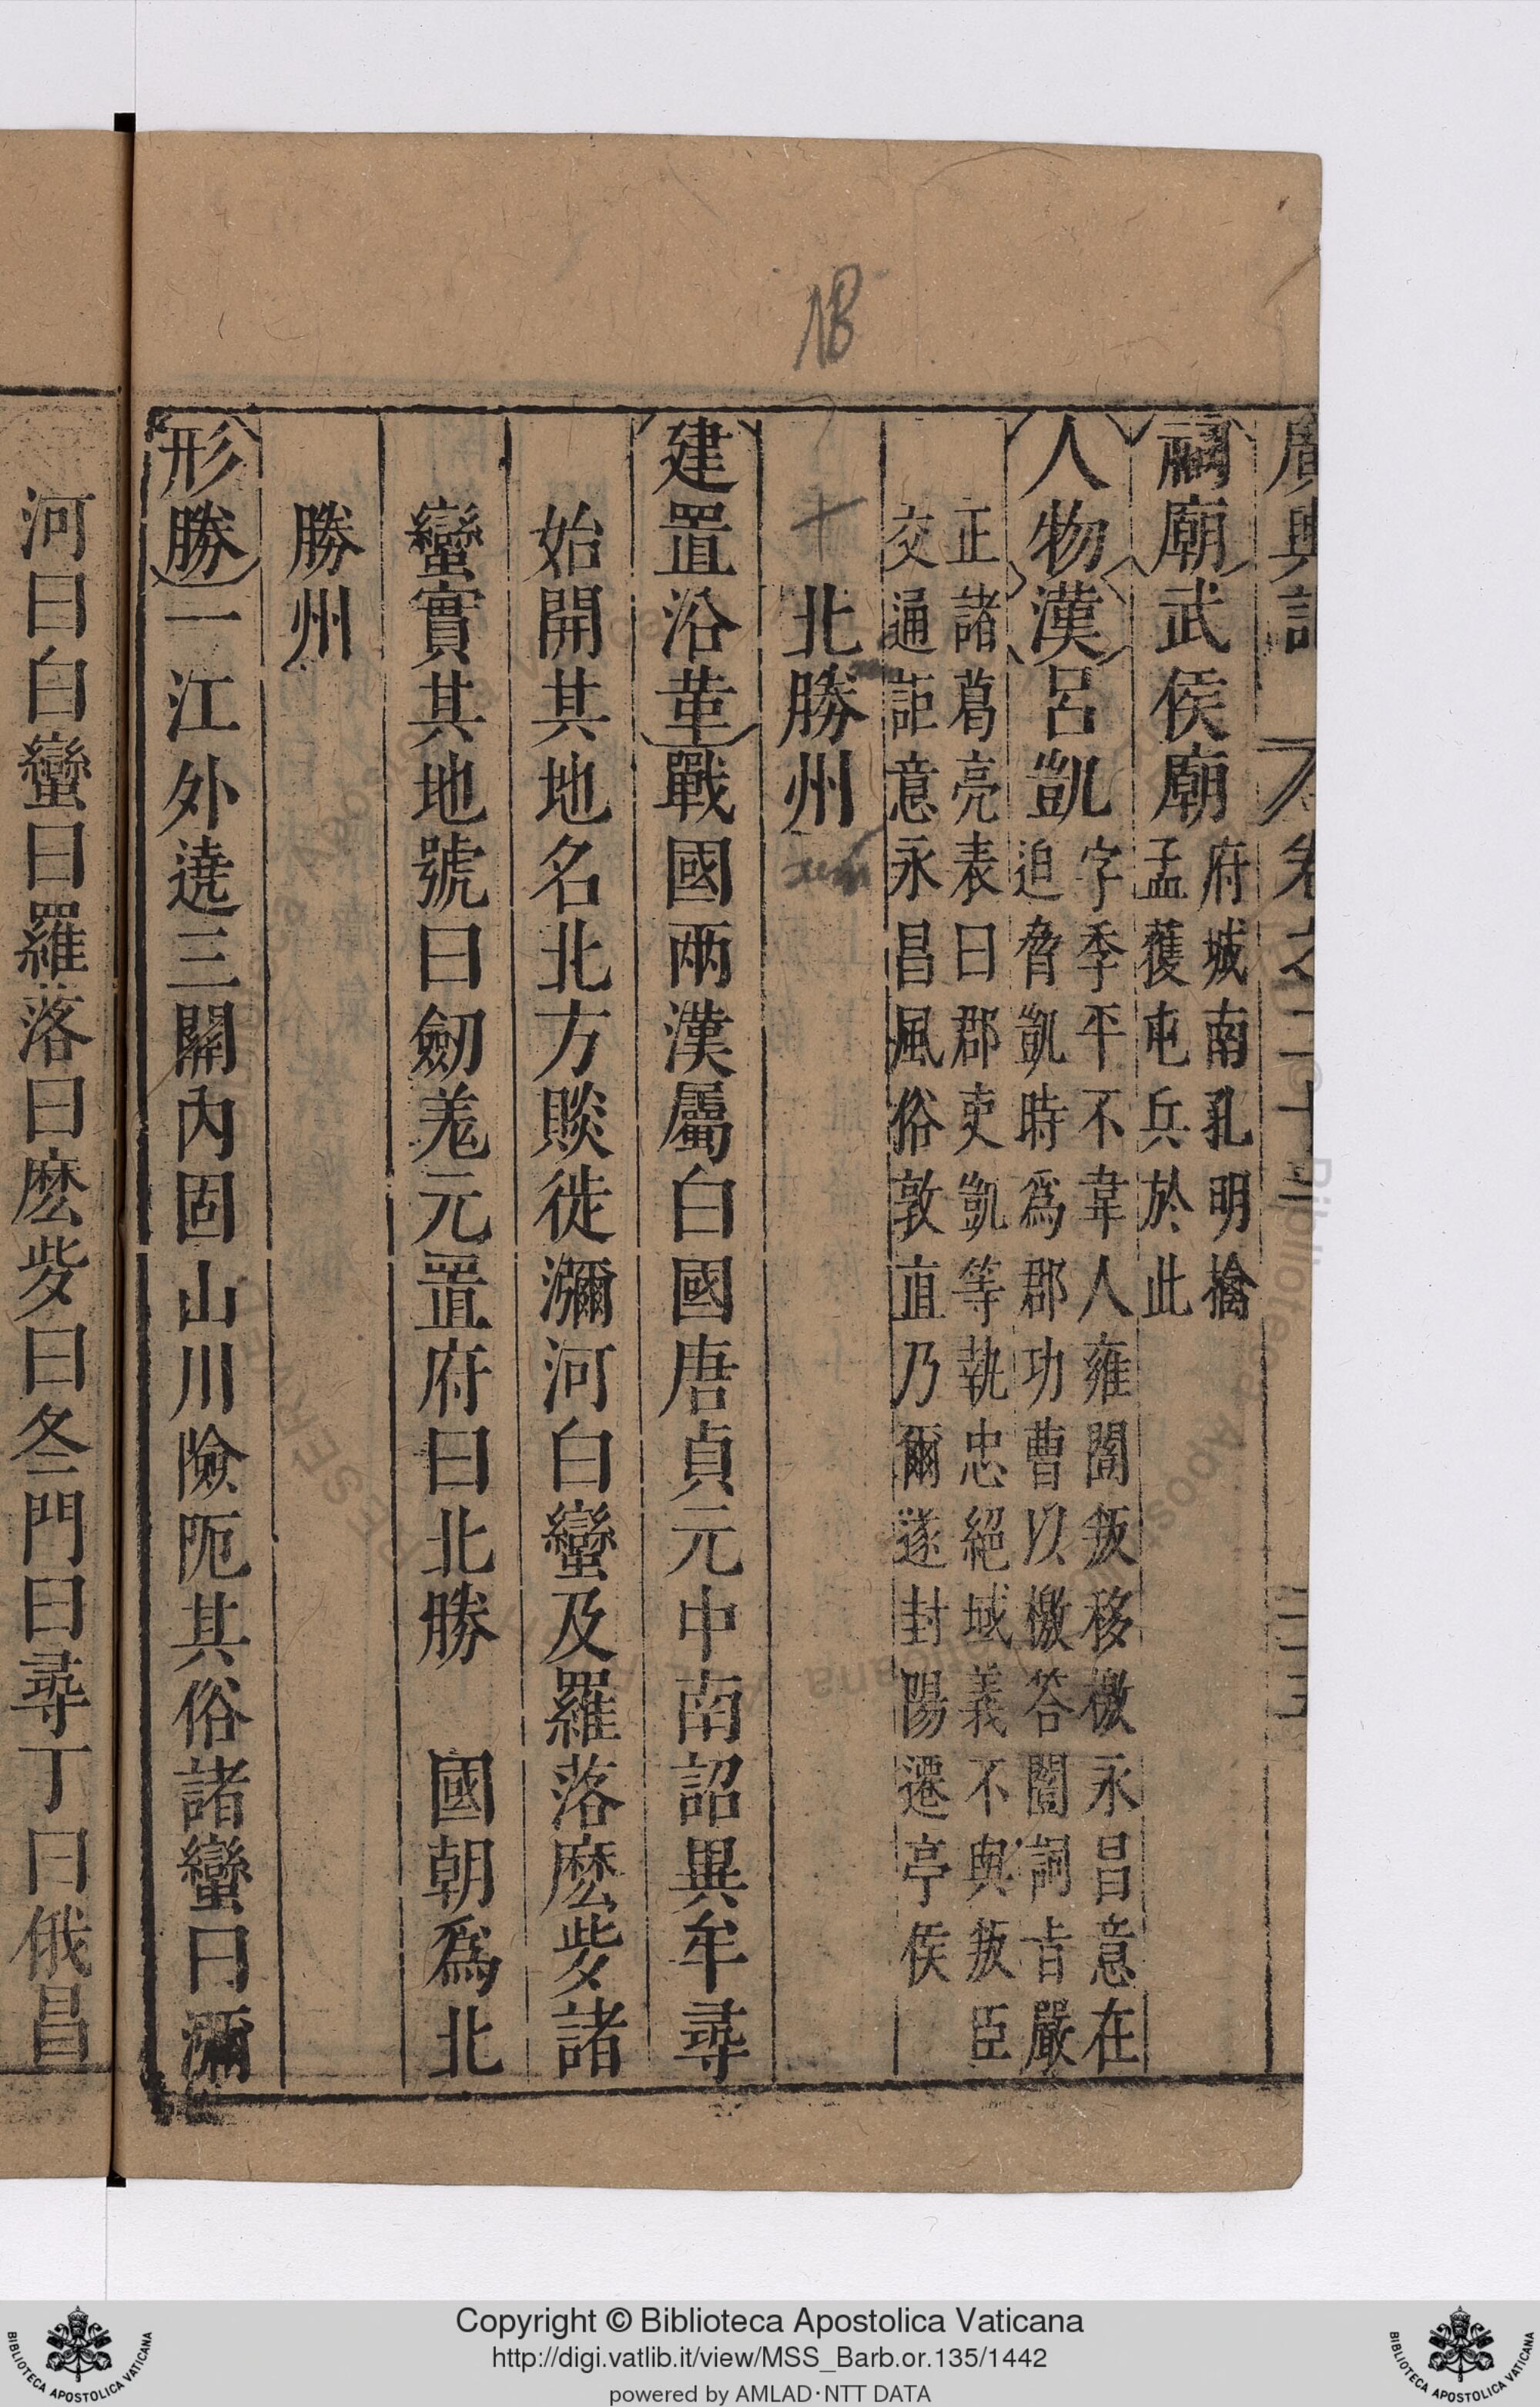 廣輿記 卷之二十 三五
祠廟武侯廟府城南孔明擒
孟獲屯兵於此
人物漢呂凱字季平不韋人雍闓叛移檄永昌意在
迫脅凱時爲郡功曹以檄答闓詞吉嚴
正諸葛亮表曰郡吏凱等執忠絕域義不與叛臣
交通詎意永昌風俗敦直乃爾遂封陽遷亭侯
北勝州
建置沿革戰國兩漢屬白國唐貞元中南詔異牟尋
始開其地名北方賧徙瀰河白蠻及羅落麽㱔諸
蠻實其地號曰劒羗元置府曰北勝 國朝爲北
勝州
形勝一江外遶三關內固山川險阨其俗諸蠻曰瀰
河曰白蠻曰羅落曰麽㱔曰冬門曰尋丁曰俄昌
18
Copyright © Biblioteca Apostolica Vaticana
http://digi.vatlib.it/view/MSS_Barb.or.135/1442
powered by AMLAD·NTT DATA
BIBLIOTECA APOSTOLICA VATICANA
BIBLIOTECA APOSTOLICA VATICANA